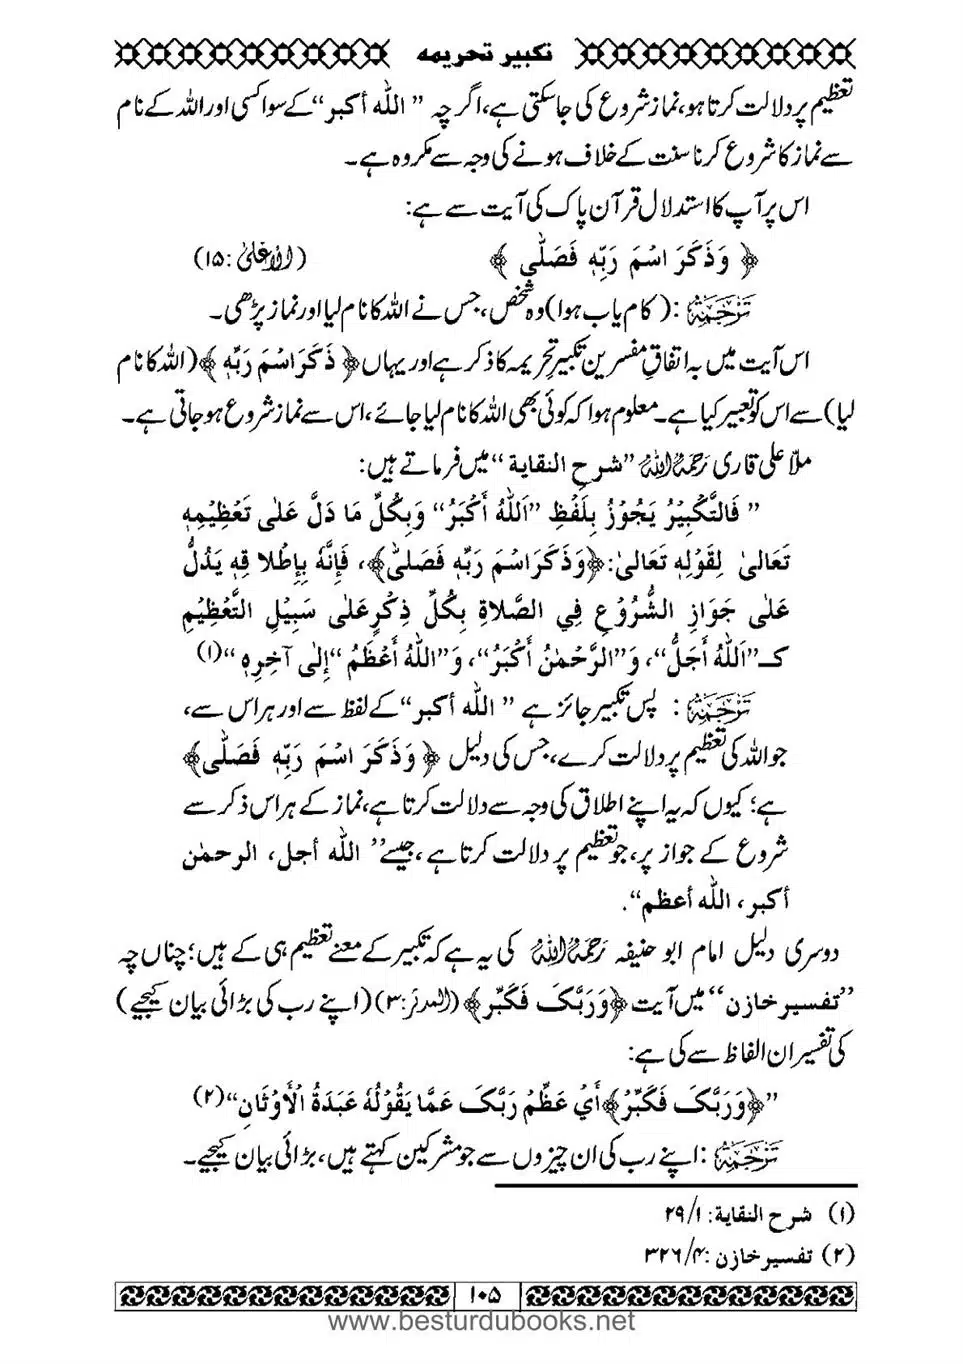 تکبیر تحریمہ
تعظیم پر دلالت کرتا ہو، نماز شروع کی جاسکتی ہے، اگر چہ ”اللّٰه أكبر“ کے سوا کسی اور اللہ کے نام
سے نماز کا شروع کرنا سنت کے خلاف ہونے کی وجہ سے مکروہ ہے۔
اس پر آپ کا استدلال قرآن پاک کی آیت سے ہے:
﴿ وَذَكَرَ اسْمَ رَبِّهٖ فَصَلّٰى ﴾ (الأعلیٰ: ۱۵)
تَرْجَمَۃ: (کام یاب ہوا) وہ شخص، جس نے اللہ کا نام لیا اور نماز پڑھی۔
اس آیت میں بہ اتفاقِ مفسرین تکبیرِ تحریمہ کا ذکر ہے اور یہاں ﴿ ذَكَرَ اسْمَ رَبِّهٖ ﴾ (اللہ کا نام
لیا) سے اس کو تعبیر کیا ہے۔ معلوم ہوا کہ کوئی بھی اللہ کا نام لیا جائے، اس سے نماز شروع ہو جاتی ہے۔
ملّا علی قاری رَحِمَہُ اللّٰہُ ”شرح النقاية“ میں فرماتے ہیں:
” فَالتَّكْبِيْرُ يَجُوْزُ بِلَفْظِ ”اَللّٰهُ أَكْبَرُ“ وَبِكُلِّ مَا دَلَّ عَلٰى تَعْظِيْمِهٖ
تَعَالىٰ لِقَوْلِهٖ تَعَالىٰ: ﴿وَذَكَرَ اسْمَ رَبِّهٖ فَصَلّٰى﴾، فَإِنَّهٗ بِإِطْلَا قِهٖ يَدُلُّ
عَلٰى جَوَازِ الشُّرُوْعِ فِي الصَّلَاةِ بِكُلِّ ذِكْرٍ عَلٰى سَبِيْلِ التَّعْظِيْمِ
كـ”اَللّٰهُ أَجَلُّ“، وَ”الرَّحْمٰنُ أَكْبَرُ“، وَ”اللّٰهُ أَعْظَمُ“ إِلٰى آخِرِهٖ “(۱)
تَرْجَمَۃ: پس تکبیر جائز ہے ” اللّٰه أكبر“ کے لفظ سے اور ہر اس سے،
جو اللہ کی تعظیم پر دلالت کرے، جس کی دلیل ﴿ وَذَكَرَ اسْمَ رَبِّهٖ فَصَلّٰى﴾
ہے؛ کیوں کہ یہ اپنے اطلاق کی وجہ سے دلالت کرتا ہے، نماز کے ہر اس ذکر سے
شروع کے جواز پر، جو تعظیم پر دلالت کرتا ہے، جیسے ” اللّٰه أجل، الرحمٰن
أكبر، اللّٰه أعظم“.
دوسری دلیل امام ابو حنیفہ رَحِمَہُ اللّٰہُ کی یہ ہے کہ تکبیر کے معنے تعظیم ہی کے ہیں؛ چناں چہ
”تفسیر خازن“ میں آیت ﴿وَرَبَّكَ فَكَبِّر﴾ (المدثر: ۳) (اپنے رب کی بڑائی بیان کیجیے)
کی تفسیر ان الفاظ سے کی ہے:
”﴿وَرَبَّكَ فَكَبِّرْ﴾ أَيْ عَظِّمْ رَبَّكَ عَمَّا يَقُوْلُهٗ عَبَدَةُ الْأَوْثَانِ“(۲)
تَرْجَمَۃ: اپنے رب کی ان چیزوں سے جو مشرکین کہتے ہیں، بڑائی بیان کیجیے۔
(۱) شرح النقاية: ۲۹/۱
(۲) تفسیر خازن: ۳۲۶/۴
۱۰۵
www.besturdubooks.net